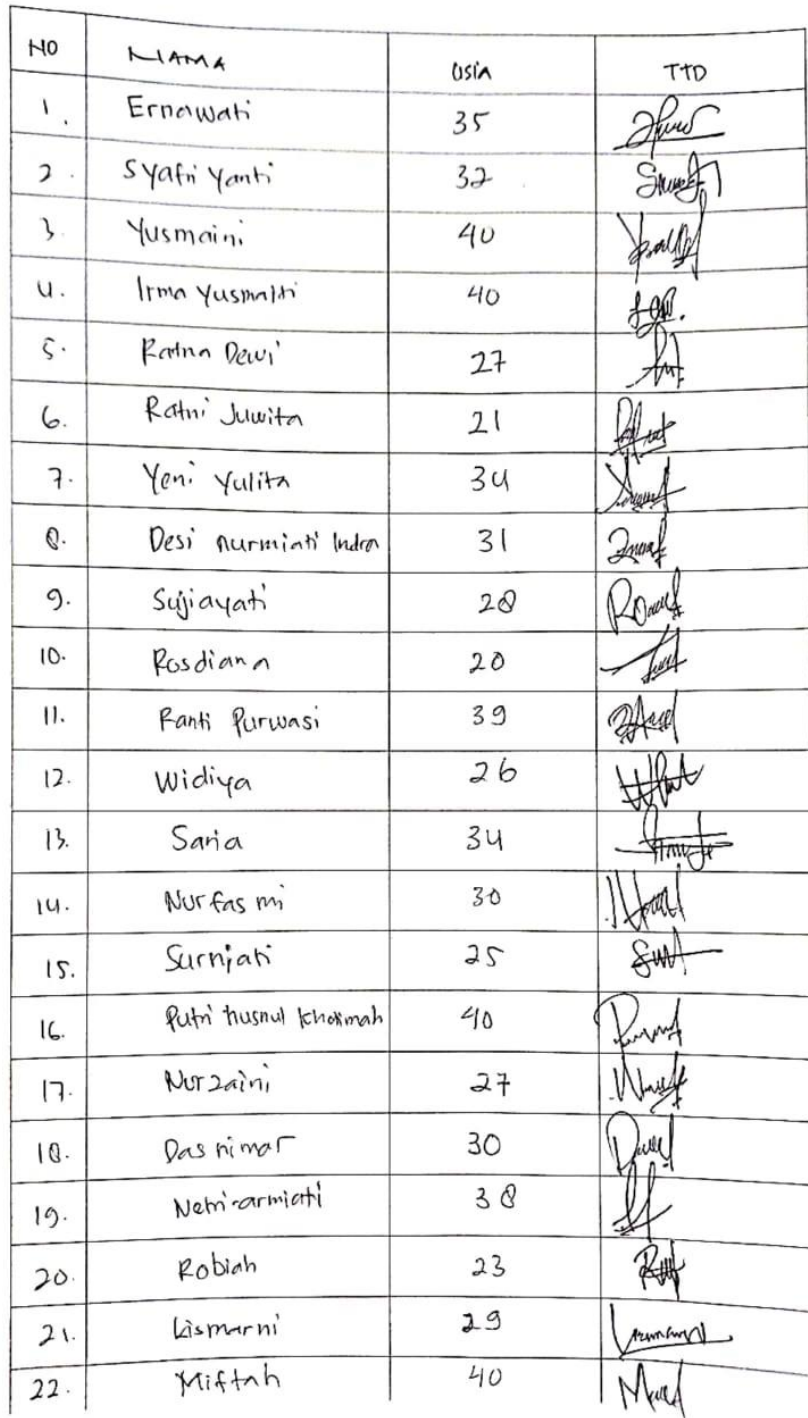 NO NAMA USIA TTD
1. Ernawati 35
2. Syafri Yanti 32
3. Yusmaini 40
4. Irma Yusmaiti 40
5. Ratna Dewi 27
6. Ratni Juwita 21
7. Yeni Yulita 34
8. Desi nurmiati Indra 31
9. Sujiayati 28
10. Rosdiana 20
11. Ranti Purwasi 39
12. Widiya 26
13. Saria 34
14. Nurfasmi 30
15. Surniati 25
16. Putri husnul khotimah 40
17. Nurzaini 27
18. Dasnimar 30
19. 38
20. Robiah 23
21. Lismarni 29
22. Miftah 40